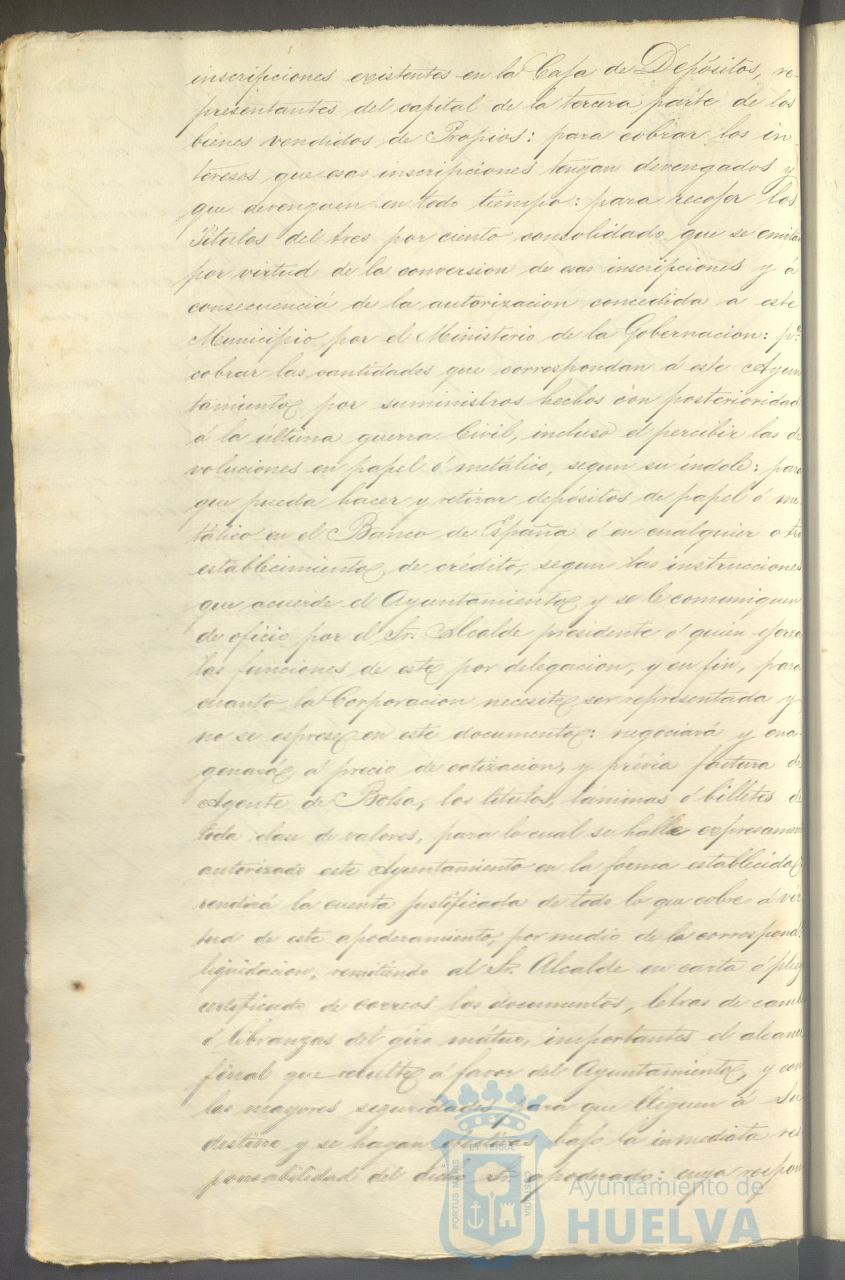 inscripciones existentes en la Caja de Depósitos, re-
presentantes del capital de la tercera parte de los
bienes vendidos de Propios: para cobrar los in
tereses que esas inscripciones tengan devengados y
que devenguen en todo tiempo: para recojer los
Titulos del tres por ciento consolidado que se emitan
por virtud de la conversion de esas inscripciones y á
consecuencia de la autorizacion concedida a este
Municipio por el Ministerio de la Gobernacion: pª
cobrar las cantidades que correspondan á este Ayun
tamiento por suministros hechos con posterioridad
á la última guerra Civil, incluso el percibir las de
voluciones en papel ó metálico, segun su índole: para
que pueda hacer y retirar depósitos de papel ó me
tálico en el Banco de España ó en cualquier otro
establecimiento de crédito, segun las instrucciones
que acuerde el Ayuntamiento y se le comuniquen
de oficio por el Sr. Alcalde presidente ó quien ejerza
las funciones de este por delegacion, y en fin, para
cuanto la Corporacion necesite ser representada y
no se esprese en este documento: negociará y ena-
genará á precio de cotizacion, y prévia factura de
Agente de Bolsa, los titulos, láminas ó billetes de
toda clase de valores, para lo cual se halle expresamen
autorizado este Ayuntamiento en la forma establecida;
rendirá la cuenta justificada de todo lo que cobre á vir
tud de este apoderamiento, por medio de la correspond.
liquidacion, remitiendo al Sr. Alcalde en carta ó pliego
certificado de correos los documentos, letras de cambi
ó libranzas del giro mútuo, importantes el alcance
final que resulte á favor del Ayuntamiento, y con
las mayores seguridades para que lleguen á su
destino y se hagan efectivas bajo la inmediata res
ponsabilidad del dicho Sr. apoderado: cuya respon
PORTUS MARIS
ET TERRAE
CUSTODIA
Ayuntamiento de
HUELVA